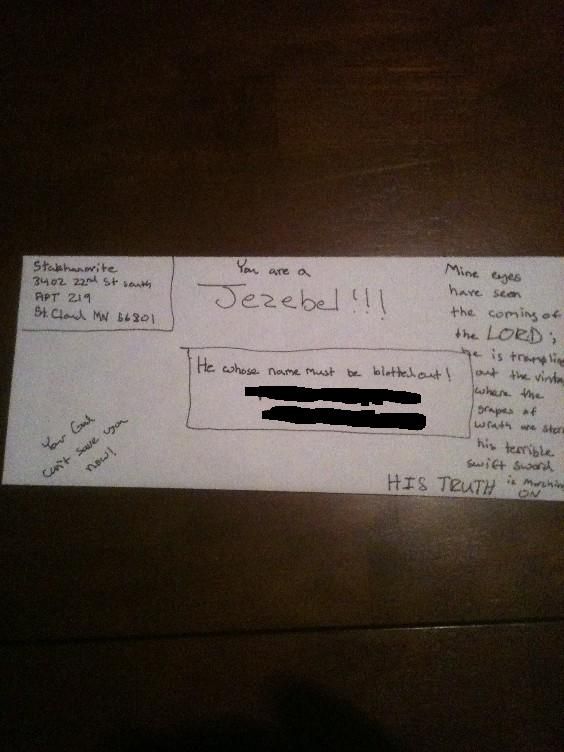 Stakhanovite
3402 22nd St South
APT 219
St. Cloud MN 56301
You are a
Jezebel!!!
He whose name must be blotted out!
Your God
can't save you
now!
Mine eyes
have seen
the coming of
the LORD;
he is tramplin
out the vinta
where the
grapes of
wrath are stor
his terrible
swift sword
HIS TRUTH is marchin
ON